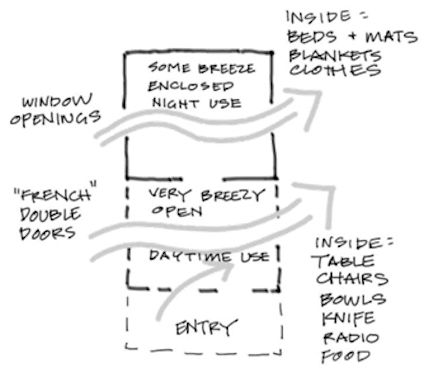 INSIDE =
BEDS + MATS
BLANKETS
CLOTHES
SOME BREEZE
ENCLOSED
NIGHT USE
WINDOW
OPENINGS
"FRENCH"
DOUBLE
DOORS
VERY BREEZY
OPEN
DAYTIME USE
INSIDE =
TABLE
CHAIRS
BOWLS
KNIFE
RADIO
FOOD
ENTRY